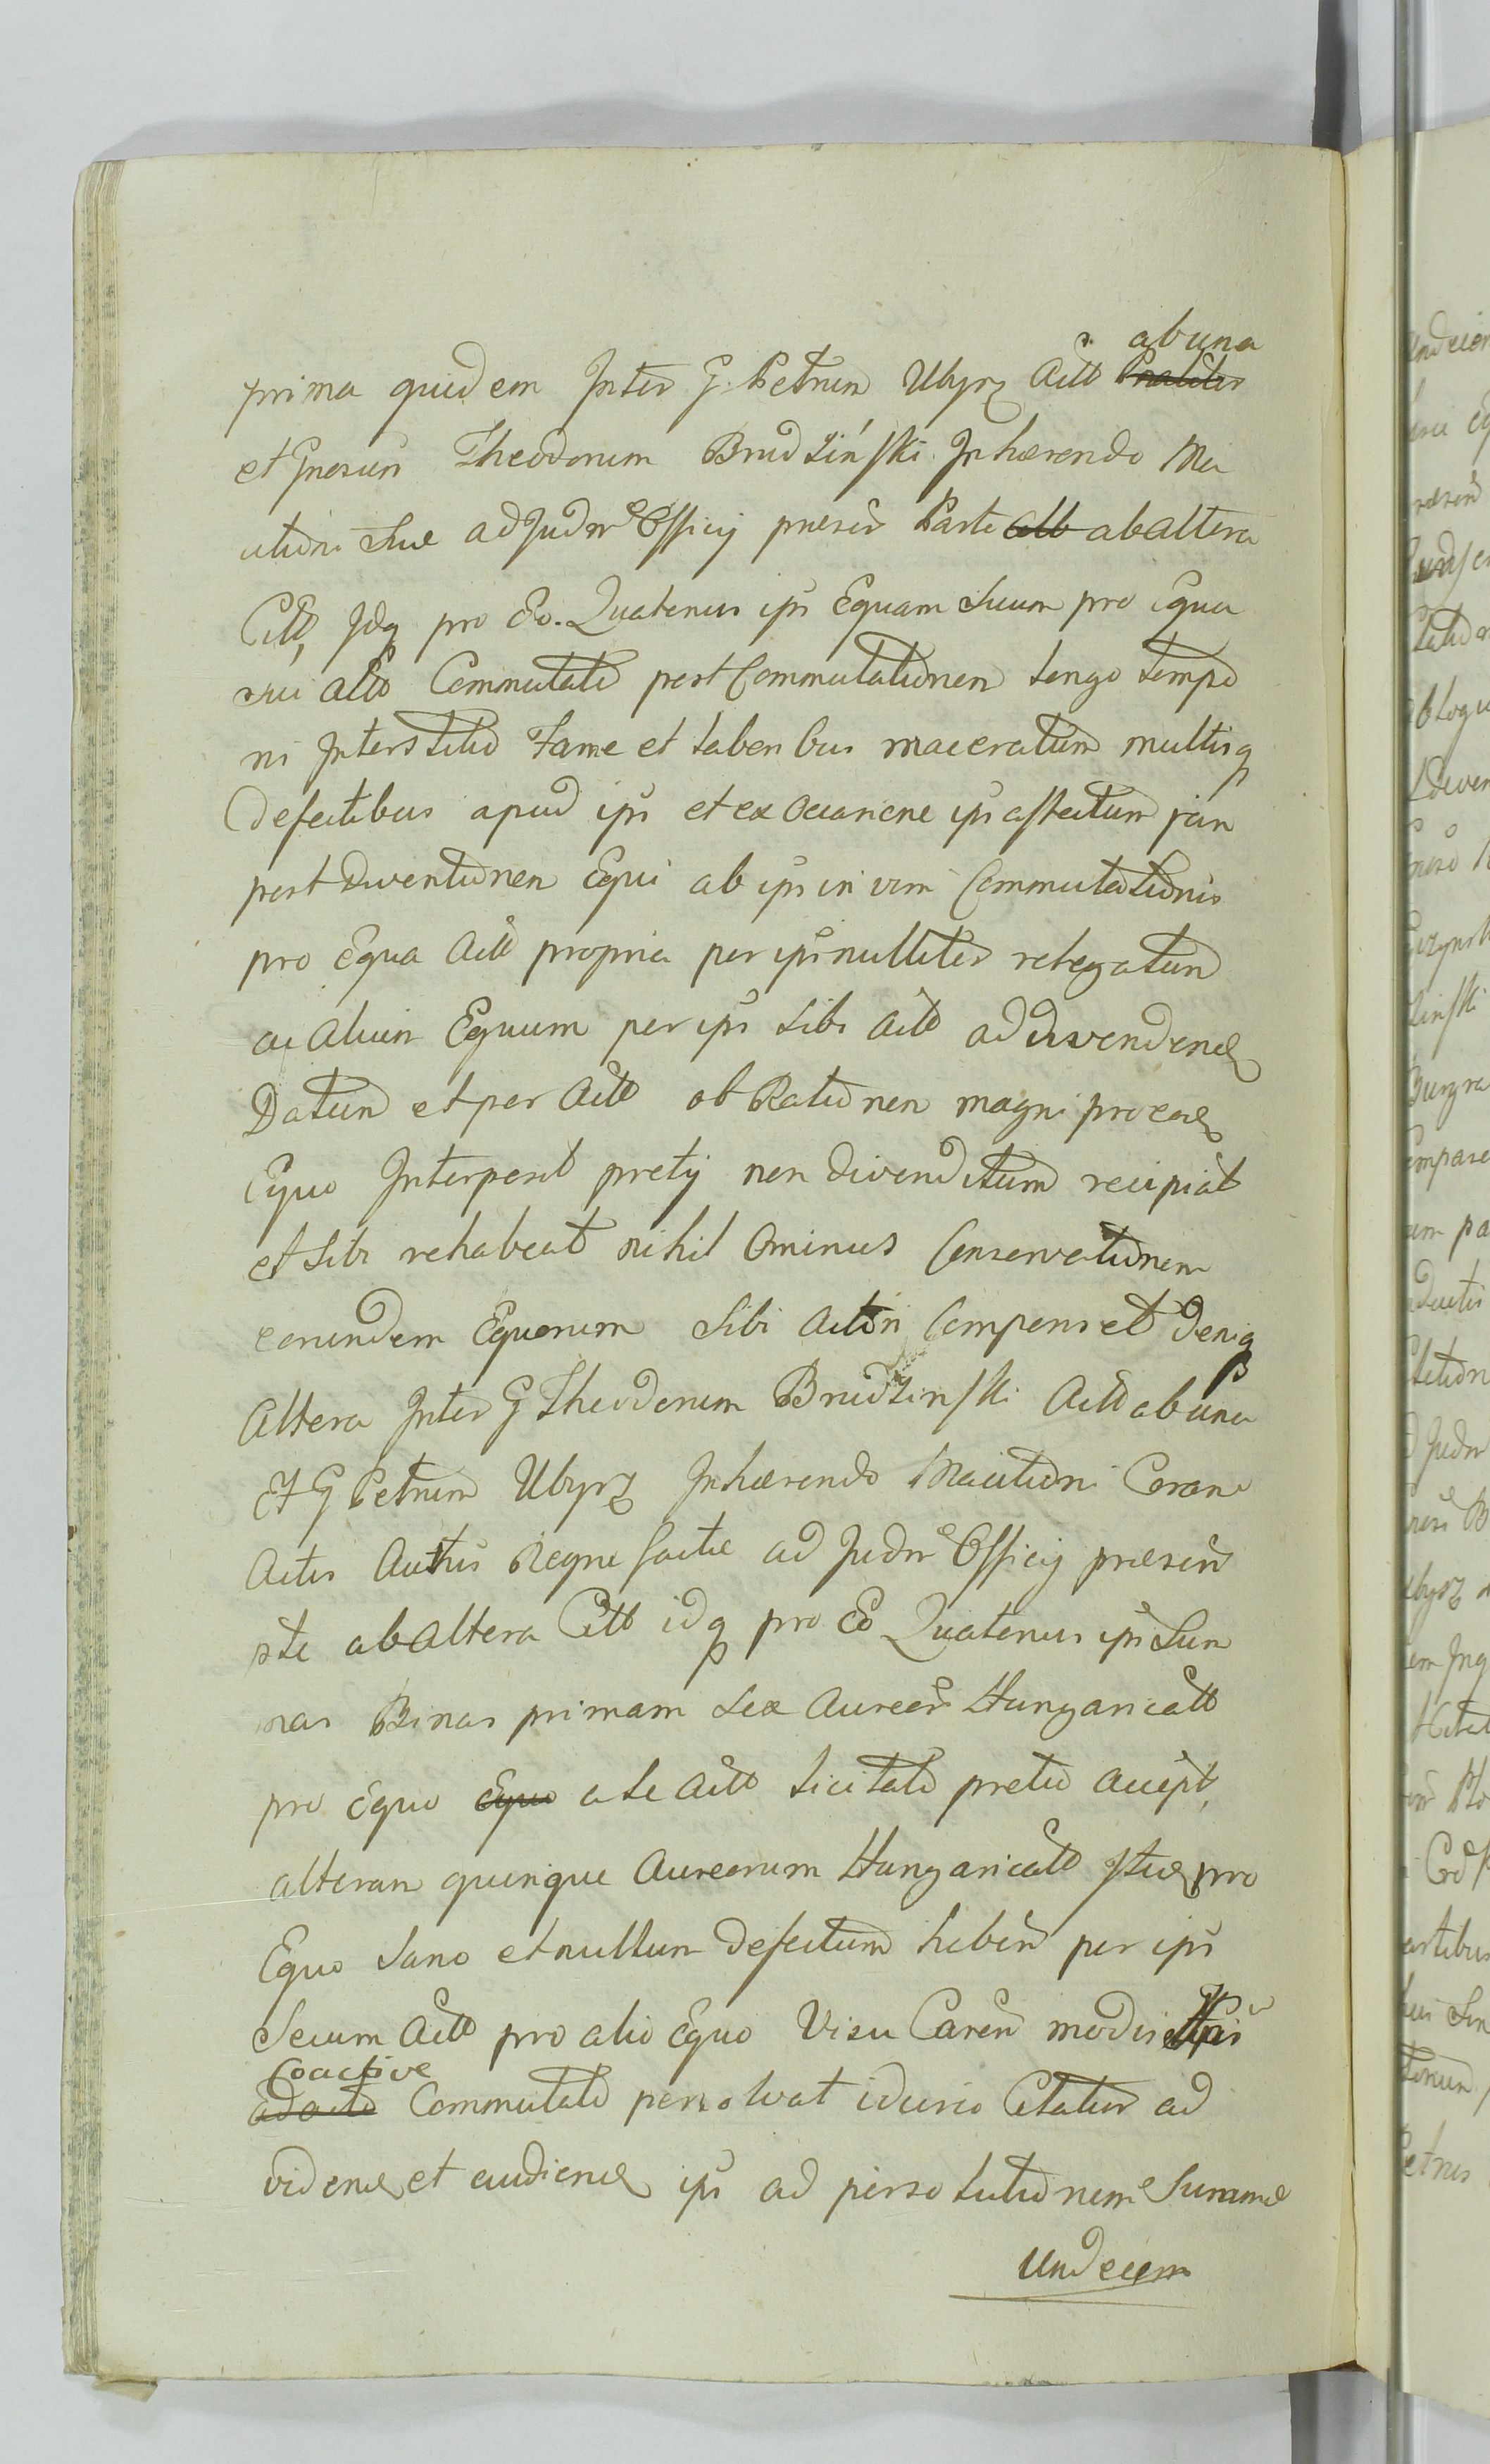 ab una
prima quidem Inter G. Petrum Ubysz Actt Praliter
et Gnosum Theodorum Brudziński Inhærendo Ma
utioni Suæ ad Judm Officij præsen Parte Alt ab altera
Citt, Idq pro Eo. Quatenus ips Equam Suum pro Equa
sui Actt Commutato post Commutationem longo tempo
ris Interstitio Fame et laboribus maceratum multisq
Defectibus apud ips et ex occasione ips affectum jam
post diventionem Equi ab ips in vim Commutationis
pro Equa Actt propria per ips nulliter relegatum
ac alium Equum per ips Sibi Actt ad divendend
Datum et per Actt ob Rationem magni pro eod
Equo Interposit pretij non divenditum recipiat
et Sibi rehabeat nihil Ominus Conservationem
eorundem Equorum Sibi Actori Compenset Deniq
Altera Inter G Theodorum Brudzinski Actt ab una
Et G Petrum Ubysz Inhærendo Mautioni Coram
Actis Authis Regni factæ ad Judm Officij præsen
rte ab altera Citt idq pro Eo Quatenus ips Sum
mas Binas primam Sex Aureor Hungaricatt
pro Equo Equo a Se Actt licitato pretio accept,
alteram quinque Aureorum Hungaricatt Itid pro
Equo Sano et nullum Defectum haben per ips
Secum Actt pro alio Equo Visu Caren modis
Coactive
adacto Commutato persolvat iducio Citatur ad
vidend et audiend ips ad persolutionem Summæ
Undecem